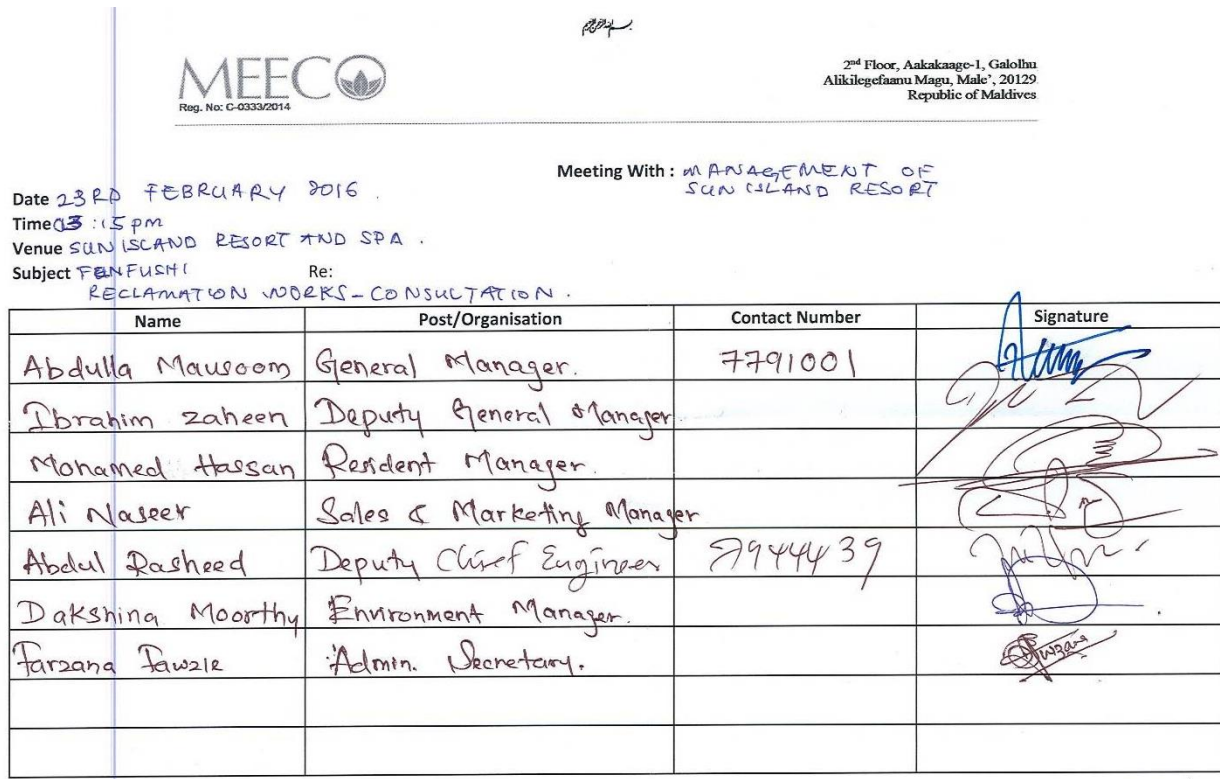 MEECO
Reg. No: C-0333/2014
2nd Floor, Aakakaage-1, Galolhu
Alikilegefaanu Magu, Male', 20129
Republic of Maldives
Meeting With : MANAGEMENT OF
SUN ISLAND RESORT
Date 23RD FEBRUARY 2016.
Time 03:15 pm
Venue SUN ISLAND RESORT AND SPA.
Subject FENFUSHI Re:
RECLAMATION WORKS - CONSULTATION.
Name Post/Organisation Contact Number Signature
Abdulla Mausoom General Manager. 7791001
Ibrahim Zaheen Deputy General Manager
Mohamed Hassan Resident Manager.
Ali Naseer Sales & Marketing Manager
Abdul Rasheed Deputy Chief Engineer 7944439
Dakshina Moorthy Environment Manager.
Farzana Fawzie Admin. Secretary.